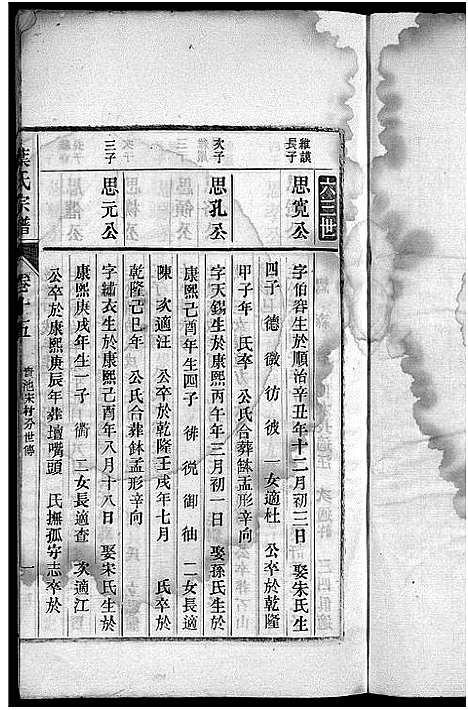 六三世
維謨長子
思寬公
字伯容生於順治辛丑年十二月初三日 娶朱氏生
四子 德 徵 彷 彼 一女適杜 公卒於乾隆
甲子年 氏卒 公氏合葬鉢盂形辛向
次子
思孔公
字天錫生於康熙丙午年三月初一日 娶孫氏生於
康熙己酉年生四子 徘 御 䄂 二女長適
陳 次適汪 公卒於乾隆壬戌年七月 氏卒於
乾隆己巳年 公氏合葬鉢盂形辛向
三子
思元公
字繡衣生於康熙己酉年八月十八日 娶宋氏生於
康熙庚戌年生一子 衜 二女長適查 次適江
公卒於康熙庚辰年葬壇嘴頭 氏撫孤守志卒於
葉氏宗譜
卷十五
貴池宋村分世傳
一